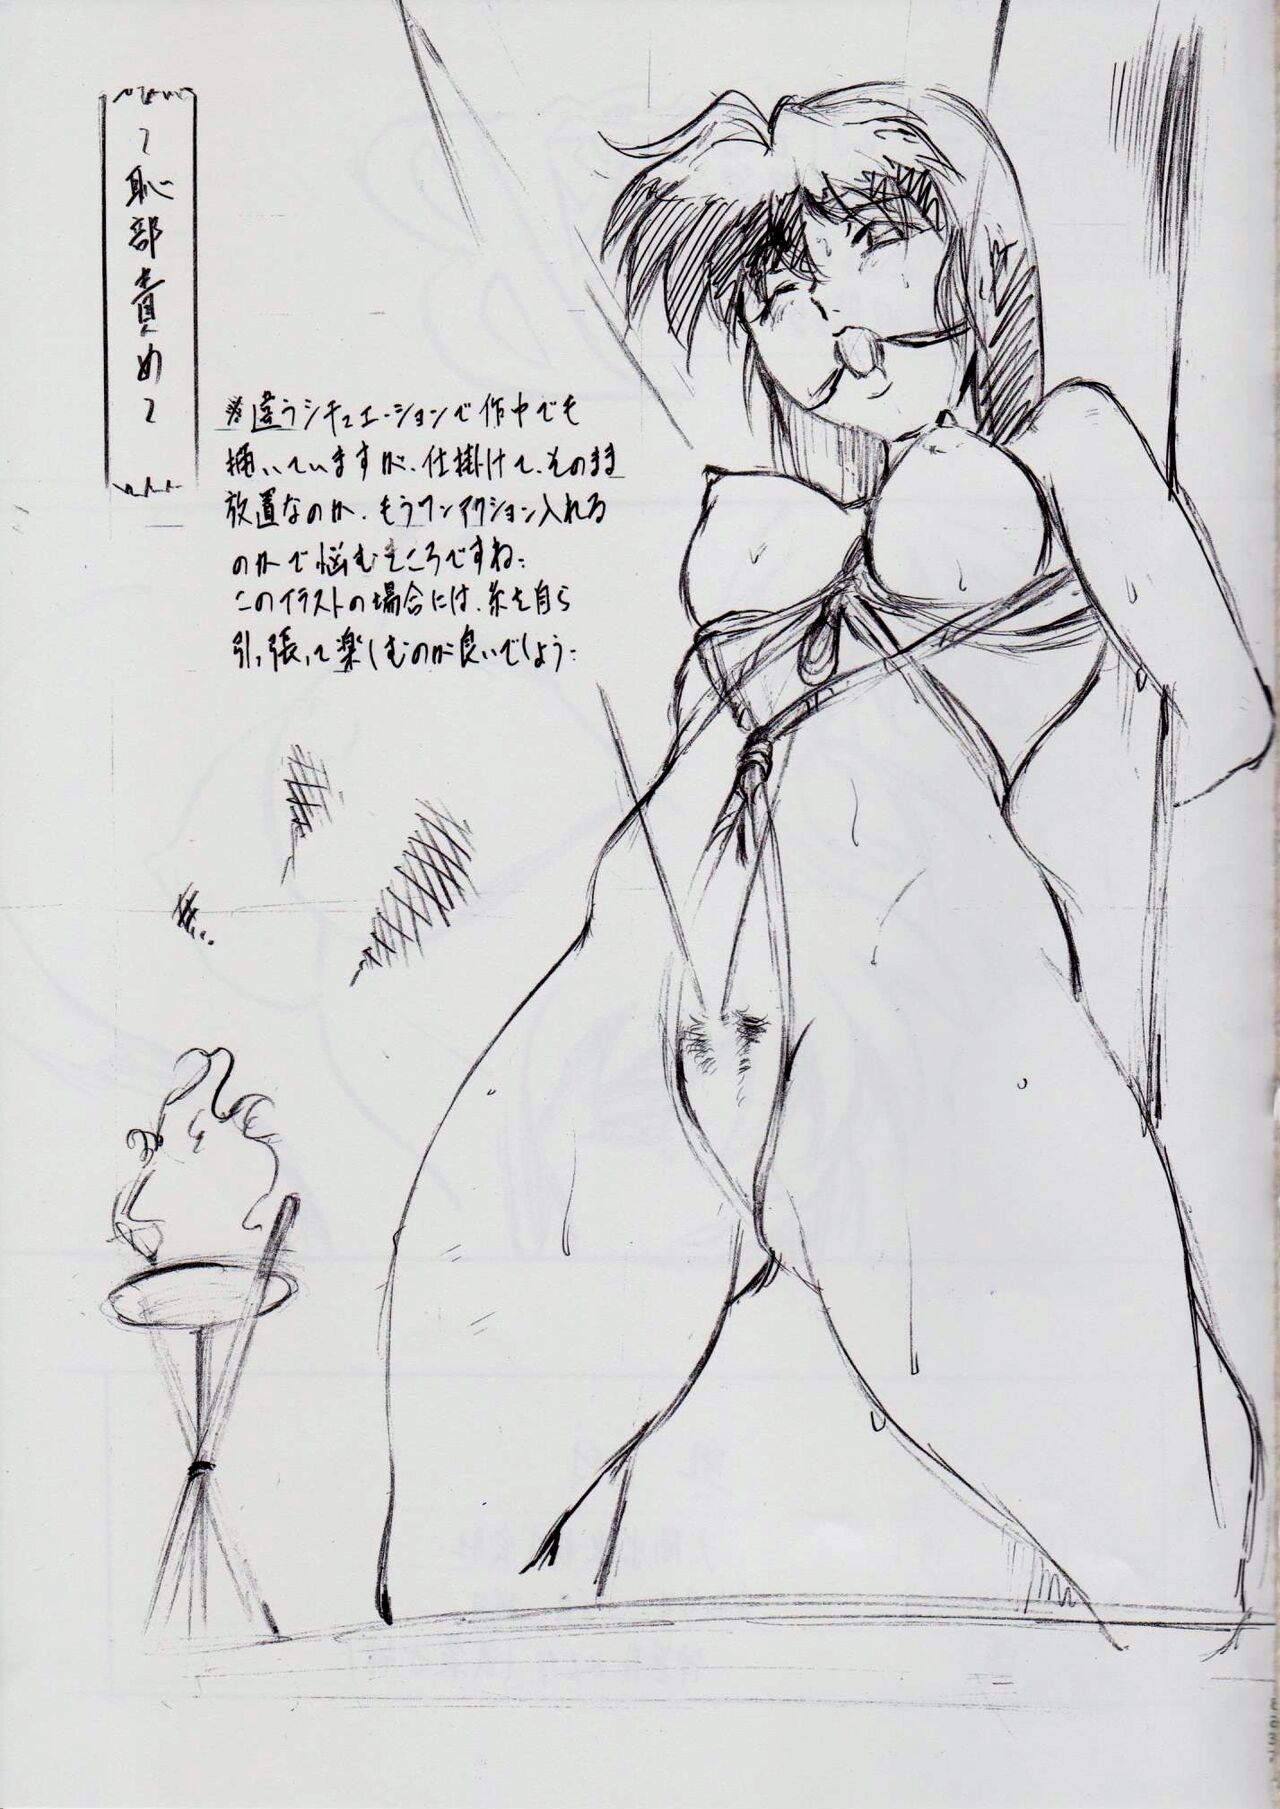 ～恥部責め～
※違うシチュエーションで作中でも
描いていますが、仕掛けて、そのまま
放置なのか、もうワンアクション入れる
のかで悩むところですね。
このイラストの場合には、糸を自ら
引っ張って楽しむのが良いでしょう。